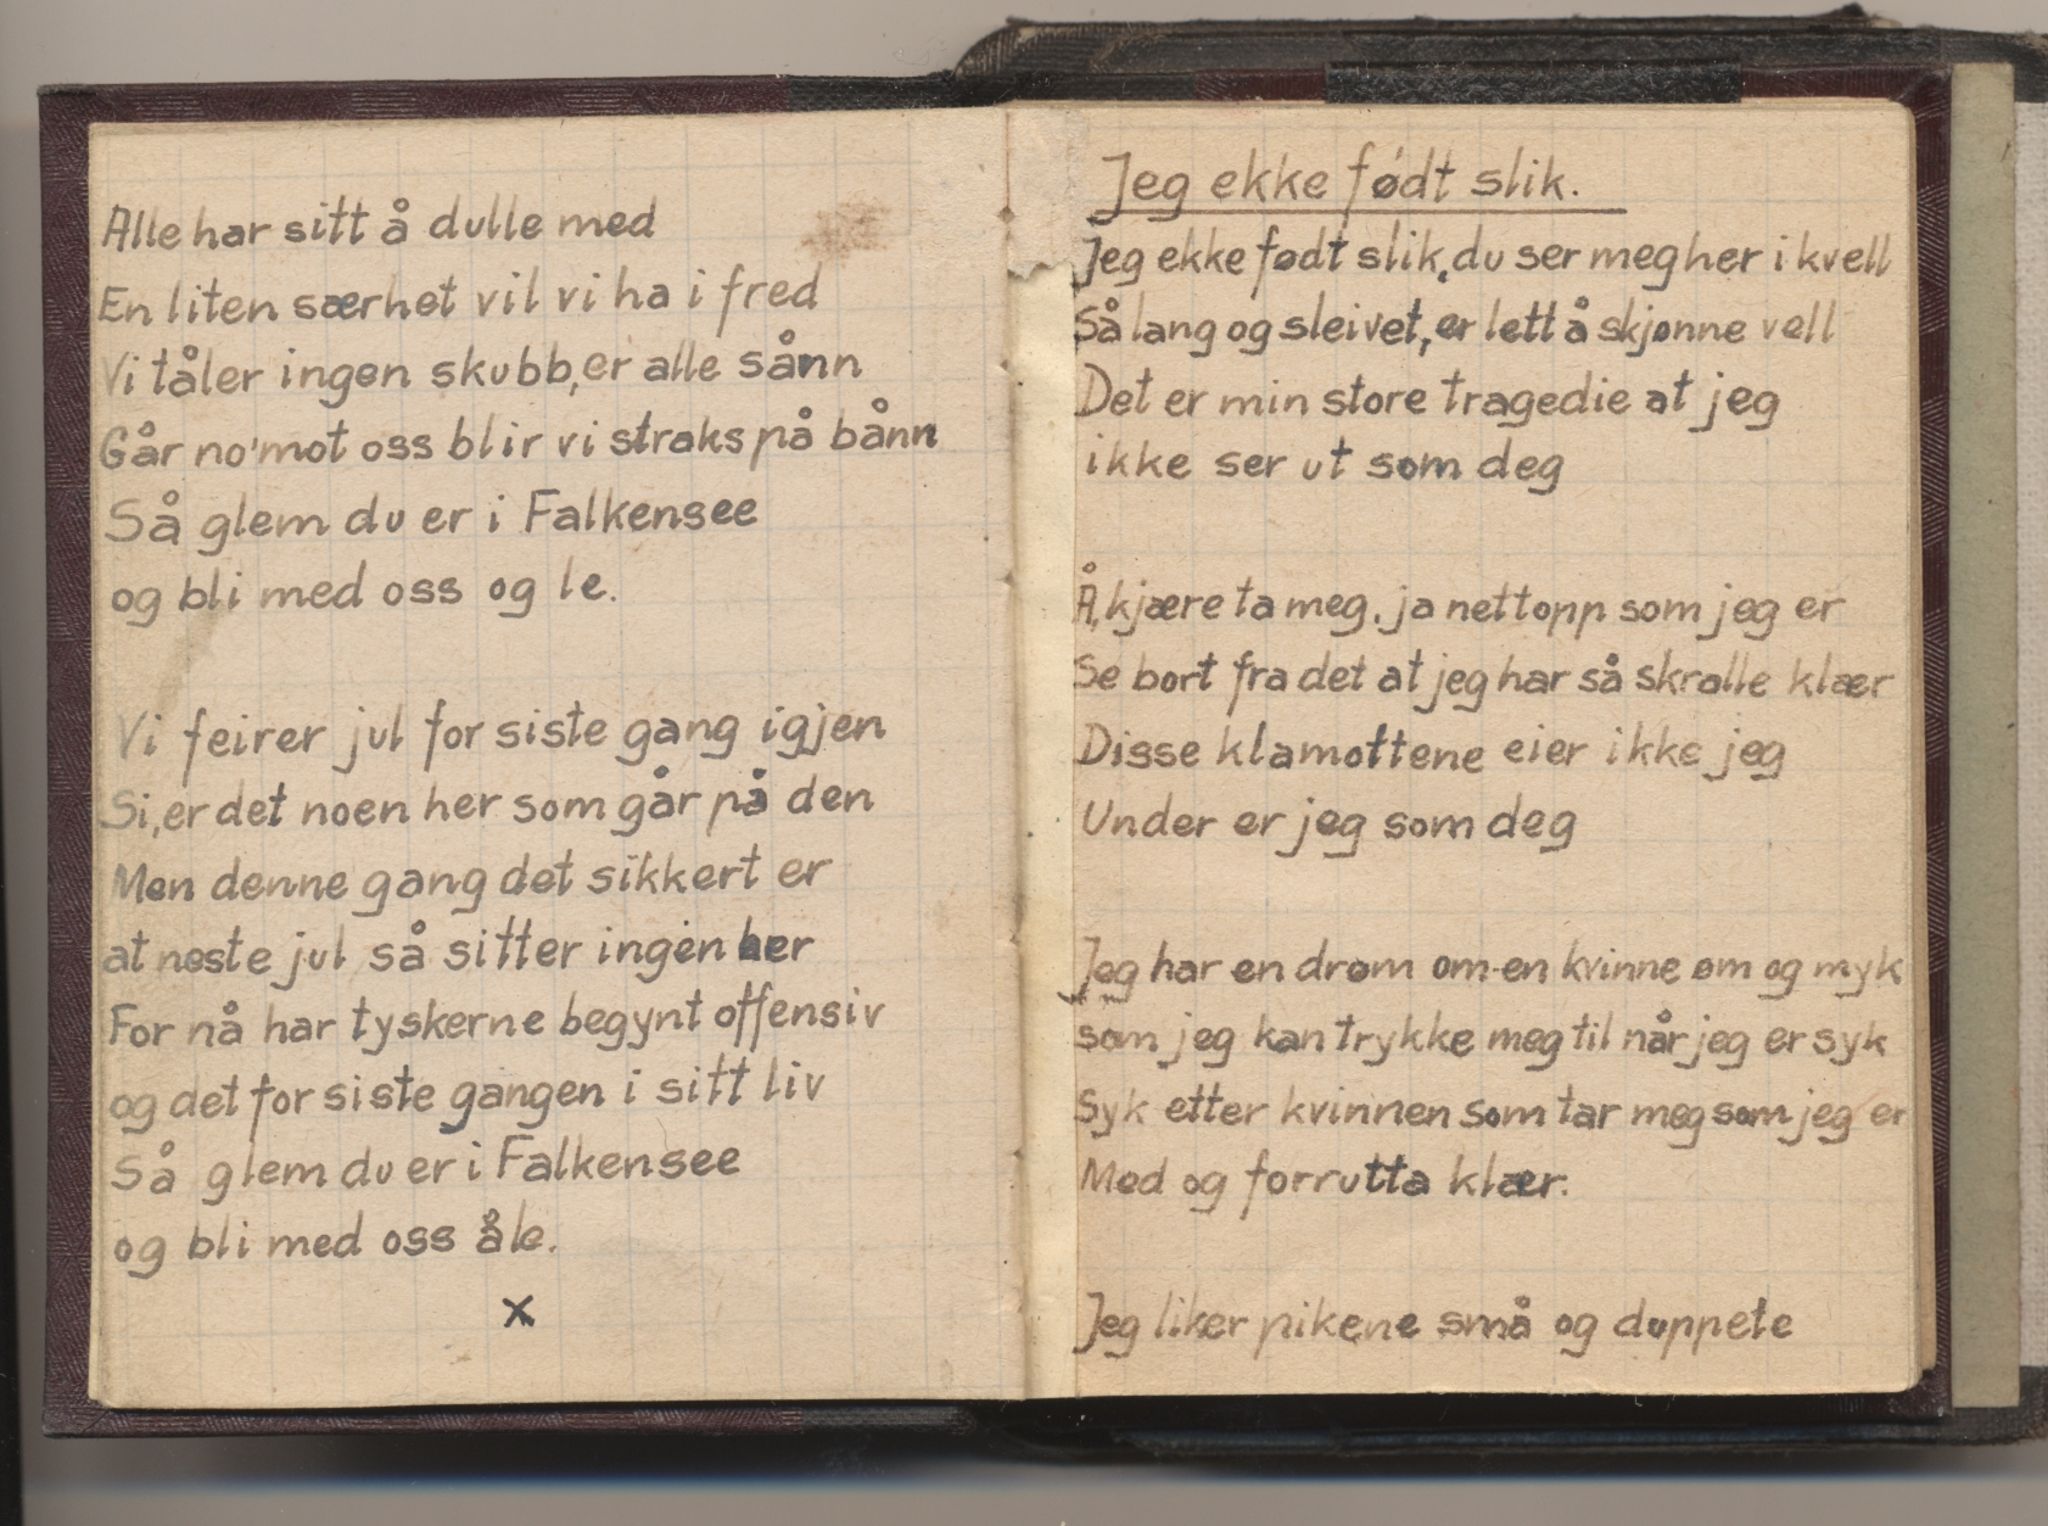 Alle har sitt å dulle med
En liten særhet vil vi ha i fred
Vi tåler ingen skubb, er alle sånn
Går no' mot oss blir vi straks på bånn
Så glem du er i Falkensee
og bli med oss og le.
Vi feirer jul for siste gang igjen
Si, er det noen her som går på den
Men denne gang det sikkert er
at neste jul så sitter ingen her
For nå har tyskerne begynt offensiv
og det for siste gangen i sitt liv
Så glem du er i Falkensee
og bli med oss å le.
x
Jeg ekke født slik.
Jeg ekke født slik, du ser meg her i kvell
Så lang og sleivet, er lett å skjønne vell
Det er min store tragedie at jeg
ikke ser ut som deg
Å, kjære ta meg, ja nettopp som jeg er
Se bort fra det at jeg har så skralle klær
Disse klamottene eier ikke jeg
Under er jeg som deg
Jeg har en drøm om en kvinne øm og myk
som jeg kan trykke meg til når jeg er syk
Syk etter kvinnen som tar meg som jeg er
Med og forrutta klær.
Jeg liker pikene små og duppete